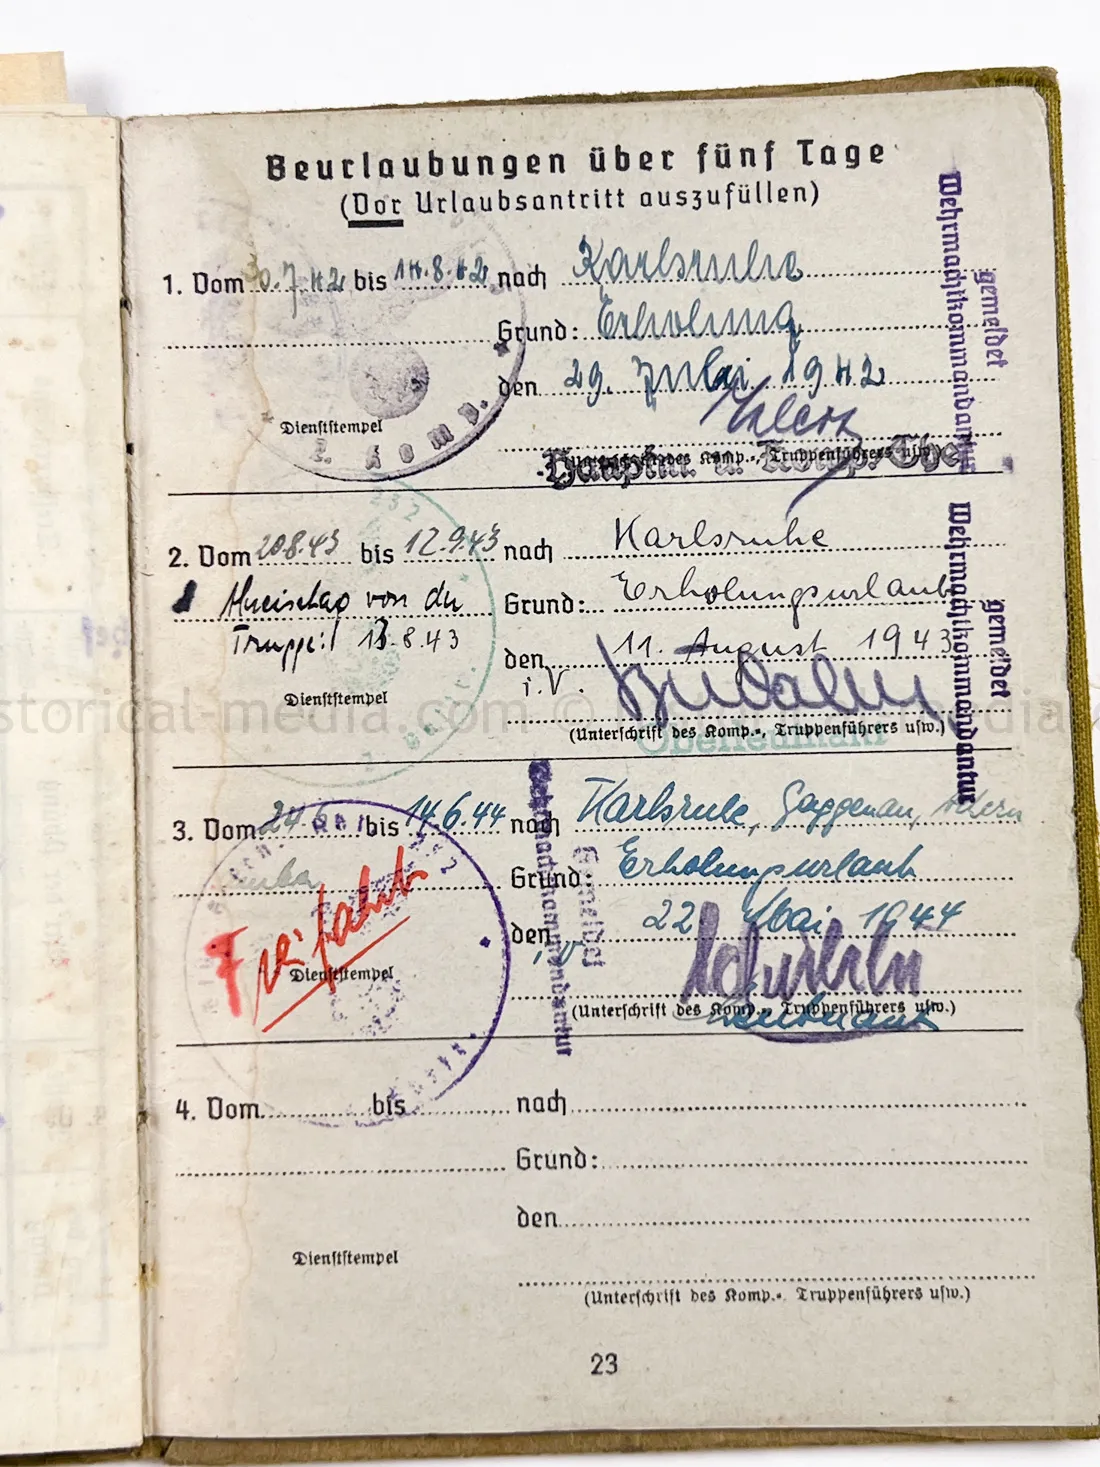 Beurlaubungen über fünf Tage
(Vor Urlaubsantritt auszufüllen)
1. Vom 30.7.42 bis 14.8.42 nach Karlsruhe
Grund: Erholung
den 29. Juli 1942
Dienststempel
2. Komp.
Hauptm. u. Komp. Chef
Wehrmachtkommandantur
gemeldet
2. Vom 20.8.43 bis 12.9.43 nach Karlsruhe
von der Grund: Erholungsurlaub
Truppe: 13.8.43 den 11. August 1943
i.V.
Dienststempel
(Unterschrift des Komp.-, Truppenführers usw.)
Oberleutnant
Wehrmachtkommandantur
gemeldet
3. Vom bis 14.6.44 nach Karlsruhe, Gaggenau,
Grund: Erholungsurlaub
den 22 Mai 1944
Freifahrt
Dienststempel
(Unterschrift des Komp.-, Truppenführers usw.)
Leutnant
Wehrmachtkommandantur
Gemeldet
4. Vom bis nach
Grund:
den
Dienststempel
(Unterschrift des Komp.-, Truppenführers usw.)
23